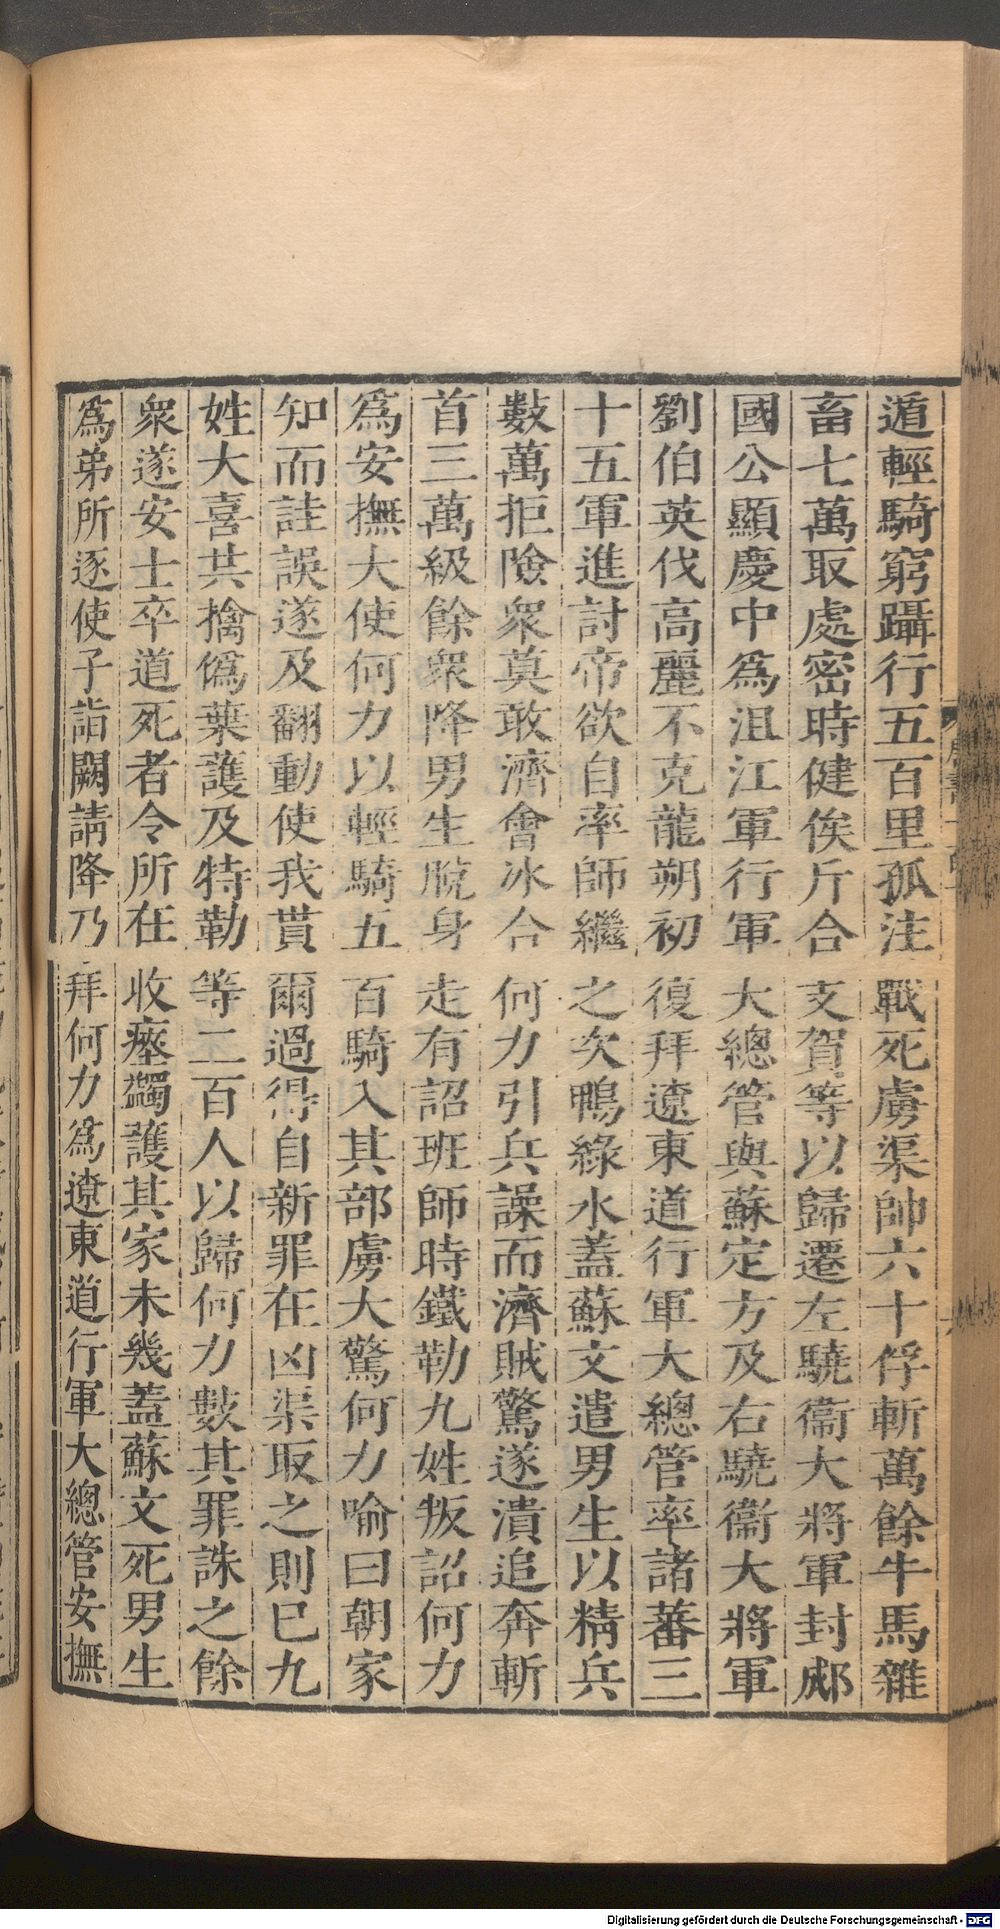 遁輕騎窮躡行五百里孤注戰死虜渠帥六十俘斬萬餘牛馬雜
畜七萬取處密時健俟斤合支賀等以歸遷左驍衞大將軍封郕
國公顯慶中爲沮江軍行軍大總管與蘇定方及右驍衞大將軍
劉伯英伐高麗不克龍朔初復拜遼東道行軍大總管率諸蕃三
十五軍進討帝欲自率師繼之次鴨綠水蓋蘇文遣男生以精兵
數萬拒險衆莫敢濟會冰合何力引兵譟而濟賊驚遂潰追奔斬
首三萬級餘衆降男生脫身走有詔班師時鐵勒九姓叛詔何力
爲安撫大使何力以輕騎五百騎入其部虜大驚何力喻曰朝家
知而詿誤遂及翻動使我貰爾過得自新罪在凶渠取之則已九
姓大喜共擒僞葉護及特勒等二百人以歸何力數其罪誅之餘
衆遂安士卒道死者令所在收瘞蠲護其家未幾蓋蘇文死男生
爲弟所逐使子詣闕請降乃拜何力爲遼東道行軍大總管安撫
Digitalisierung gefördert durch die Deutsche Forschungsgemeinschaft - DFG